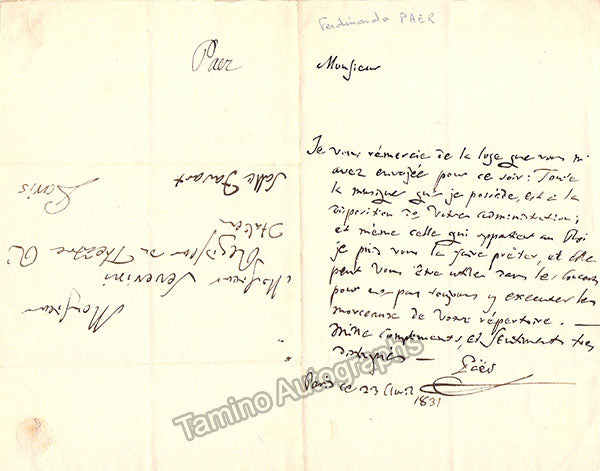 Ferdinando PAER
Paer
Monsieur
Je vous rémercie de la loge que vous m'
avez envoyée pour ce soir: Toute
la musique que je possède, est a la
disposition de Votre administration;
et même celle qui appartient au Roi
je puis vous la faire prêter, et elle
peut vous être utile dans les
pour y executer les
morceaux de Votre répertoire. —
Mille compliments, et Sentiments tres
distingués —
Paër
Paris ce 23 Avril 1831
Monsieur
Monsieur Severini
Régisseur de Theatre
Italien
Salle Favart
Paris
Tamino Autographs